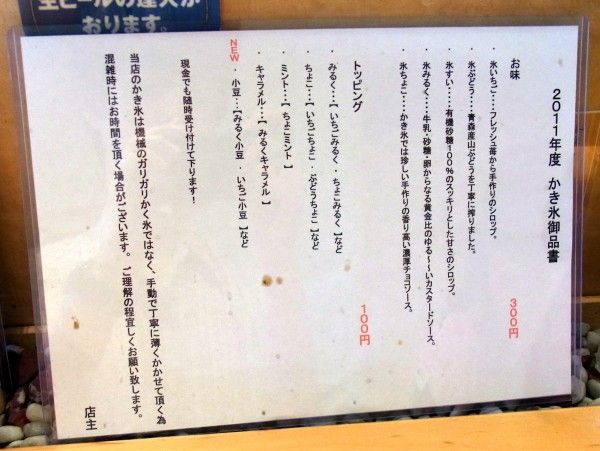 生ビールの達人が
おります。
2011年度 かき氷御品書
お味 300円
・氷いちご・・・フレッシュ苺から手作りのシロップ。
・氷ぶどう・・・・青森産山ぶどうを丁寧に搾りました。
・氷すい・・・・・有機砂糖100%のスッキリとした甘さのシロップ。
・氷みるく・・・・牛乳・砂糖・卵からなる黄金比のゆる~~いカスタードソース。
・氷ちょこ・・・・かき氷では珍しい手作りの香り高い濃厚チョコソース。
トッピング 100円
・みるく・・・【いちごみるく・ちょこみるく】など
・ちょこ・・・【いちごちょこ・ぶどうちょこ】など
・ミント・・・【ちょこミント】
・キャラメル・・・【みるくキャラメル】
NEW・小豆・・・【みるく小豆・いちご小豆】など
現金でも随時受け付けて下ります!
当店のかき氷は機械のガリガリかく氷ではなく、手動で丁寧に薄くかかせて頂く為
混雑時にはお時間を頂く場合がございます。ご理解の程宜しくお願い致します。
店主